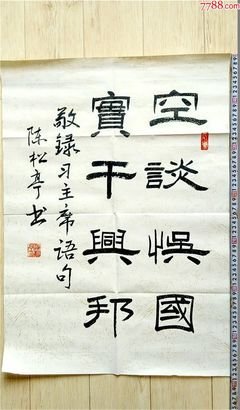 空談悞國
實干興邦
敬録习主席语句
陈松亭书
7788.com